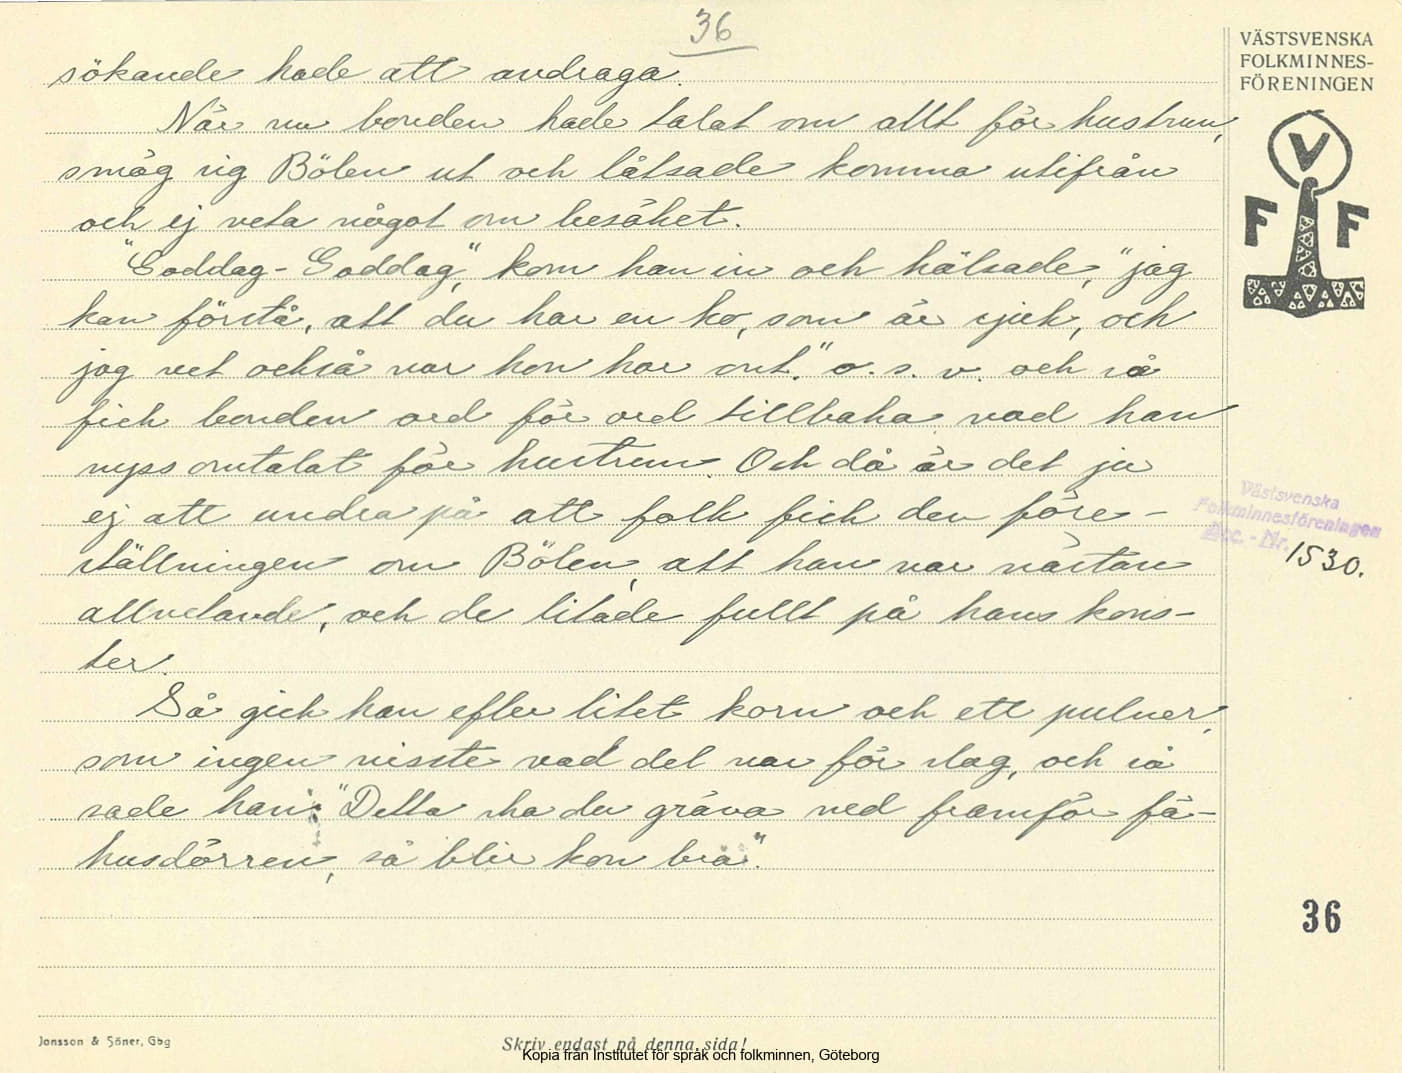 36
VÄSTSVENSKA
FOLKMINNES-
FÖRENINGEN
V
F F
sökande hade att andraga.
När nu bonden hade talat om allt för hustrun,
smög sig Bölen ut och låtsade komma utifrån
och ej veta något om besöket.
"Goddag - Goddag", kom han in och hälsade, "jag
kan förstå, att du har en ko, som är sjuk, och
jag vet också var hon har ont." o. s. v. och så
fick bonden ord för ord tillbaka vad han
nyss omtalat för hustrun. Och då är det ju
ej att undra på att folk fick den före-
ställningen om Bölen, att han var nästan
allvetande, och de litade fullt på hans kons-
ter.
Så gick han efter litet korn och ett pulver,
som ingen visste vad det var för slag, och så
sade han: "Detta ska du gräva ned framför fä-
husdörren, så blir kon bra".
Västsvenska
Folkminnesföreningen
Acc. - Nr. 1530.
36
Jonsson & Söner, Gbg
Skriv endast på denna sida!
Kopia från Institutet för språk och folkminnen, Göteborg